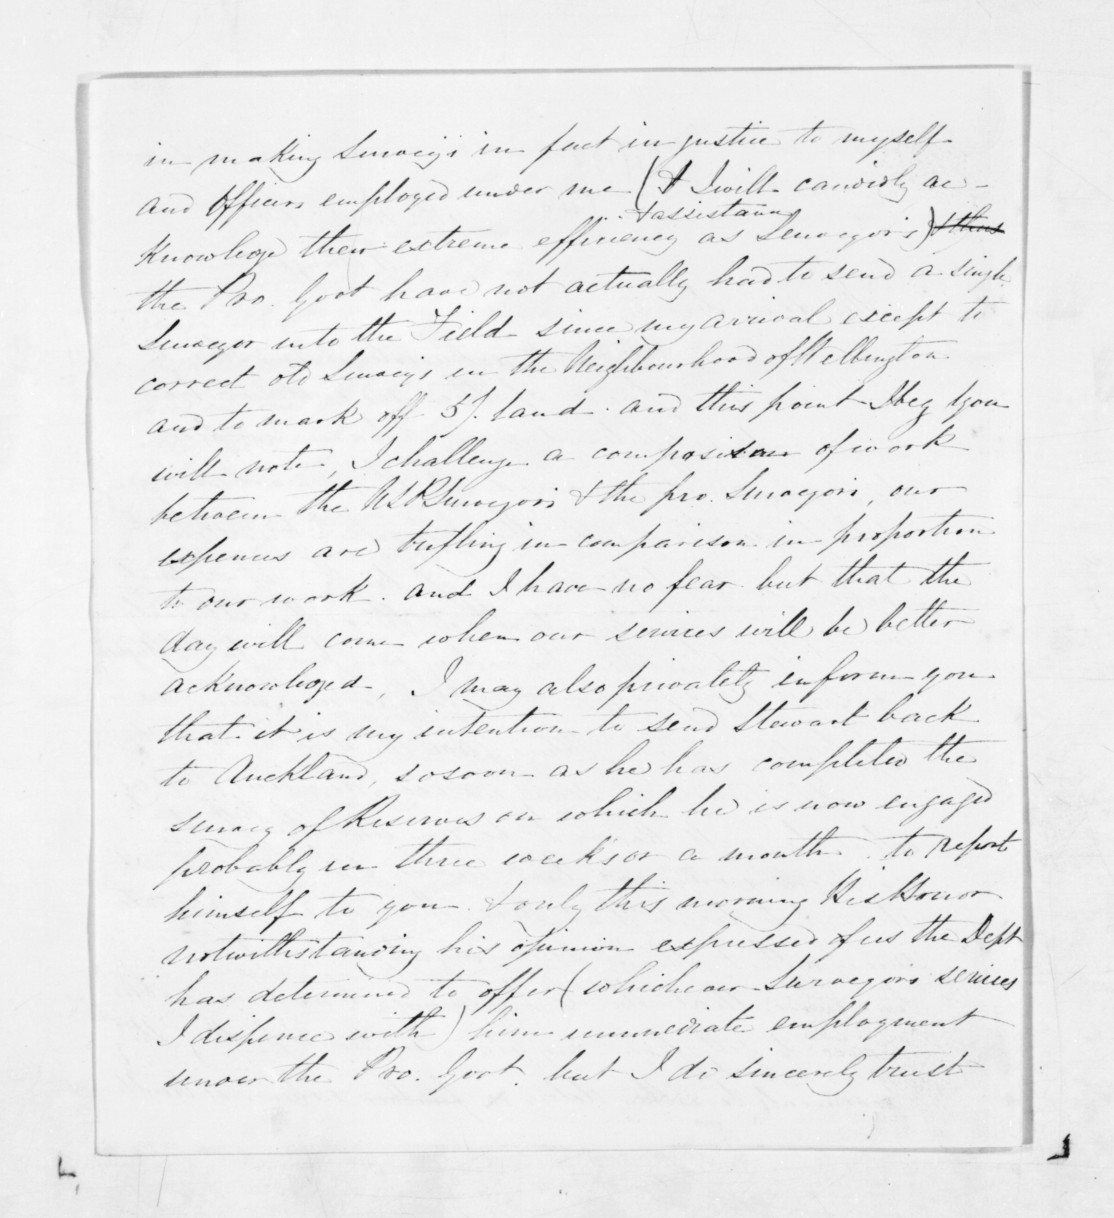 in making Surveys in fact in justice to myself
and Officers employed under me (& I will candidly ac-
knowledge their extreme efficiency as Surveyors & assistants)
the Pro. Govt have not actually had to send a single
Surveyor into the Field since my arrival except to
correct old Surveys in the Neighbourhood of Wellington
and to mark off 5/. land. and this point I beg you
will note, I challenge a comparison of work
between the Surveyors & the pro. Surveyors, our
expences are trifling in comparison in proportion
to our work. and I have no fear but that the
day will come when our services will be better
acknowledged, I may also privately inform you
that it is my intention to send Stewart back
to Auckland, so soon as he has completed the
survey of Reserves on which he is now engaged
probably in three weeks or a month. to report
himself to you & only this morning His Honor
notwithstanding his opinion expressed of us the Dept
has determined to offer (which ever Surveyors services
I dispence with) him immediate employment
under the Pro. Govt. but I do sincerely trust